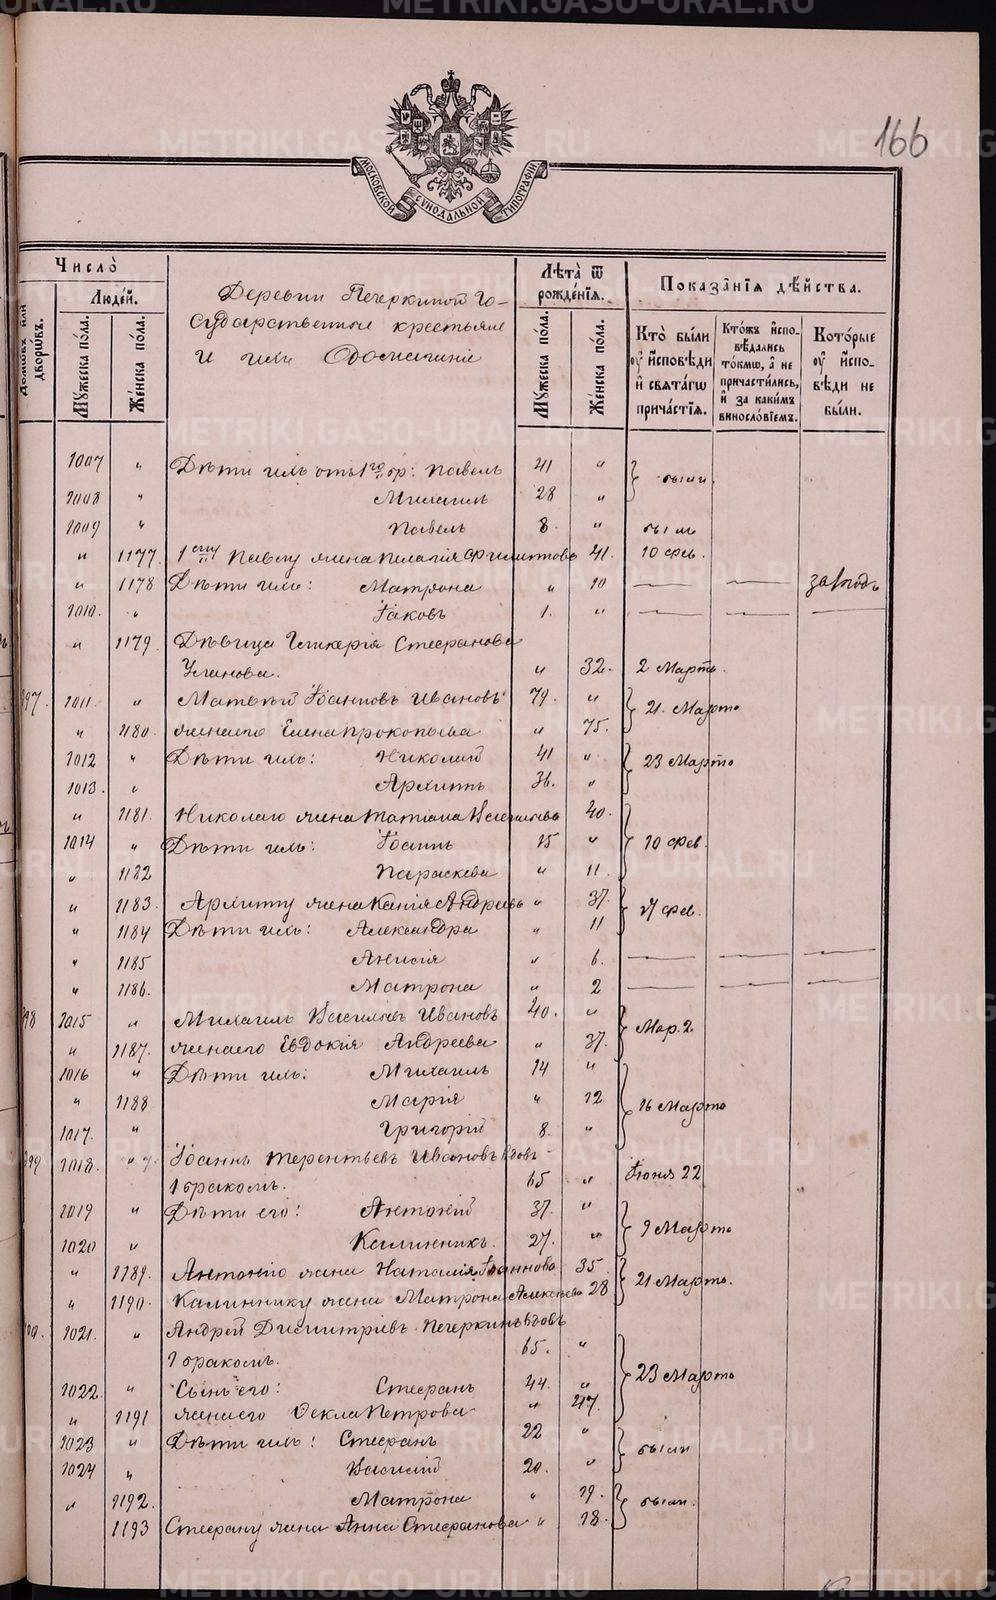 METRIKI.GASO-URAL.RU
166
МОСКОВСКОЙ СУНОДАЛЬНОЙ ТИПОГРАФІИ
Число̀
Людéй.
Домѡвъ или дворѡвъ.
Мꙋжеска по́ла.
Же́нска по́ла.
Деревни Печеркиной Го-
сударственные крестьяне
и ихъ Домашніе
Лѣта̀ ѿ рожде́нїѧ.
Мꙋжеска по́ла.
Же́нска по́ла.
Показа̂нїѧ дѣ́йства.
Кто̀ бы́ли оу҆ и҆́сповѣди и҆ свѧта́гѡ прича́стїѧ.
Кто́жъ и҆спо-вѣ́дались то́кмѡ, а҆ не причасти́лись, и҆ за каки́мъ виносло́вїемъ.
Кото́рые оу҆ и҆́спо-вѣди не бы́ли.
1007 " Дѣти ихъ отъ 1го бр: Павелъ 41 " были.
1008 " Михаилъ 28 "
1009 " Павелъ 8 " былъ
" 1177. 1му Павлу жена Пелагія Филиппова 41. 10 фев.
" 1178 Дѣти ихъ: Матрона " 10 — —
1010. " Іаковъ 1. " — — —
" 1179. Дѣвица Гликерія Стефанова
" 32. 2 Марта.
397. 1011 " Матвѣй Іоанновъ Ивановъ 79. " 21. Марта
" 1180. жена его Елена Прокопьева " 75.
1012 " Дѣти ихъ: Николай 41 " 23 Марта
1013. " Архипъ 36. "
" 1181. Николаю жена Татіана Васильева 40.
1014 " Дѣти ихъ: Іоаннъ 15 " 10 фев.
" 1182 Параскева " 11.
" 1183. Архиппу жена Ксенія Андреева " 37. фев.
" 1184 Дѣти ихъ: Александра " 11
" 1185 Анисія " 6. — — —
" 1186. Матрона " 2 — — —
398 1015 " Михаилъ Васильевъ Ивановъ 40. " Мар. 2.
" 1187. жена его Евдокія Андреева " 37.
1016 " Дѣти ихъ: Михаилъ 14 "
" 1188 Марія " 12 16 Марта
1017. " Григорій 8. "
399 1018. " Іоаннъ Терентьевъ Ивановъ вдовъ
1 бракомъ. 65 " Іюня 22
1019 " Дѣти его: Антоній 37. " 9 Марта
1020 " Калинникъ. 27. "
" 1189. Антонію жена Наталія Іоаннова 35 21 Марта.
" 1190. Калиннику жена Матрона Алексѣева 28
400. 1021. " Андрей Димитріевъ Печеркинъ вдовъ
1 бракомъ. 65. "
1022. " Сынъ его: Стефанъ 44. " 23 Марта
" 1191 жена его Ѳекла Петрова " 47.
1023 " Дѣти ихъ: Стефанъ 22 " были
1024 " Василій 20. "
" 1192. Матрона " 19. были.
1193 Стефану жена Анна Стефанова " 18.